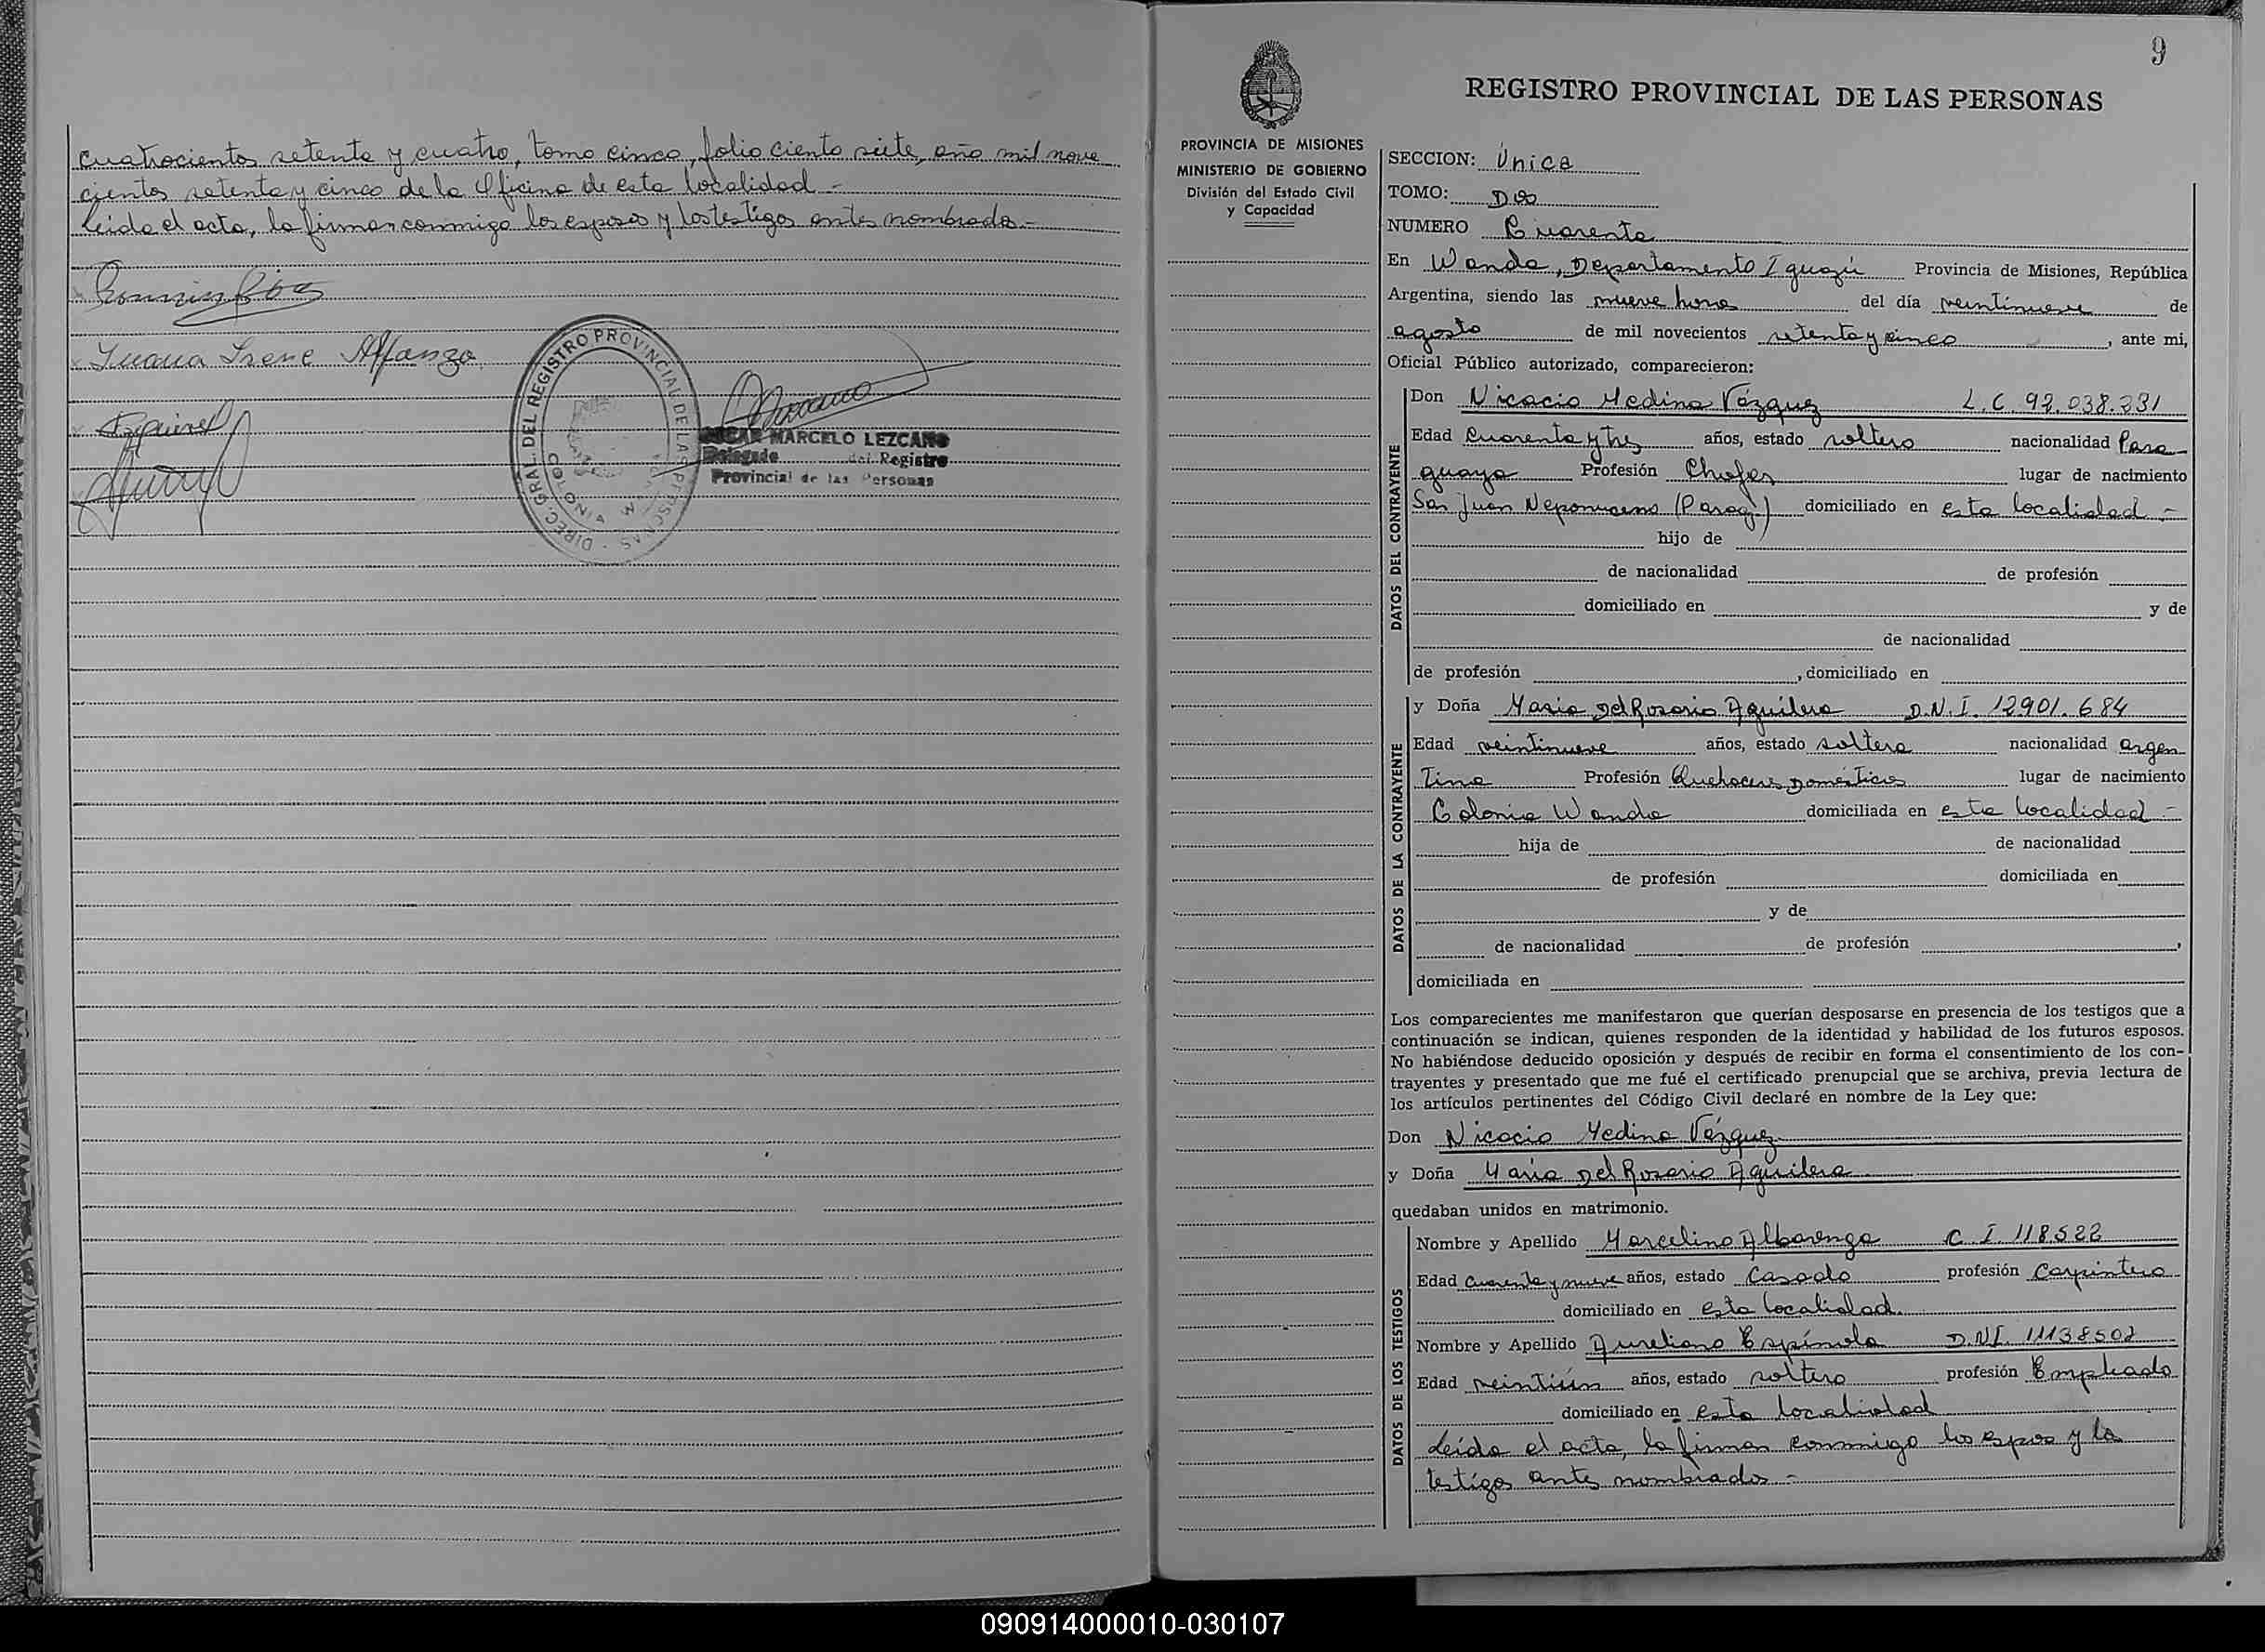 cuatrocientos setenta y cuatro, tomo cinco, folio ciento siete, año mil nove
cientos setenta y cinco de la Oficina de esta localidad -
Leída el acta, la firman conmigo los esposos y los testigos antes nombrados.-
Juana Irene Alfonzo
DIREC. GRAL. DEL REGISTRO PROVINCIAL DE LAS PERSONAS
OSCAR MARCELO LEZCANO
Delegado del Registro
Provincial de las Personas
9
REGISTRO PROVINCIAL DE LAS PERSONAS
PROVINCIA DE MISIONES
MINISTERIO DE GOBIERNO
División del Estado Civil
y Capacidad
SECCION: Única
TOMO: Dos
NUMERO Cuarenta
En Wanda, Departamento Iguazú Provincia de Misiones, República
Argentina, siendo las nueve horas del día veintinueve de
agosto de mil novecientos setenta y cinco, ante mi,
Oficial Público autorizado, comparecieron:
DATOS DEL CONTRAYENTE
Don Nicacio Medina Vázquez L.C. 92.038.231
Edad Cuarenta y tres años, estado soltero nacionalidad Para
guaya Profesión Chofer lugar de nacimiento
San Juan Nepomuceno (Parag.) domiciliado en esta localidad -
hijo de
de nacionalidad de profesión
domiciliado en y de
de nacionalidad
de profesión , domiciliado en
DATOS DE LA CONTRAYENTE
y Doña Maria Del Rosario Aguilera D.N.I. 12901.684
Edad veintinueve años, estado soltera nacionalidad argen
tina Profesión Quehaceres Domésticos lugar de nacimiento
Colonia Wanda domiciliada en esta localidad -
hija de de nacionalidad
de profesión domiciliada en
y de
de nacionalidad de profesión ,
domiciliada en
Los comparecientes me manifestaron que querían desposarse en presencia de los testigos que a
continuación se indican, quienes responden de la identidad y habilidad de los futuros esposos.
No habiéndose deducido oposición y después de recibir en forma el consentimiento de los con-
trayentes y presentado que me fué el certificado prenupcial que se archiva, previa lectura de
los artículos pertinentes del Código Civil declaré en nombre de la Ley que:
Don Nicacio Medina Vázquez
y Doña Maria Del Rosario Aguilera
quedaban unidos en matrimonio.
DATOS DE LOS TESTIGOS
Nombre y Apellido Marcelino Albarenga C.I. 118522
Edad cuarenta y nueve años, estado Casado profesión Carpintero
domiciliado en esta localidad.
Nombre y Apellido Aureliano Espínola D.N.I. 11138502
Edad veintiún años, estado soltero profesión Empleado
domiciliado en esta localidad
Leída el acta, la firman conmigo los esposos y los
testigos antes nombrados -
090914000010-030107